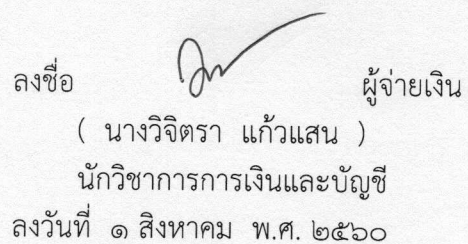 ลงชื่อ ผู้จ่ายเงิน
( นางวิจิตรา แก้วแสน )
นักวิชาการการเงินและบัญชี
ลงวันที่ ๑ สิงหาคม พ.ศ. ๒๕๖๐